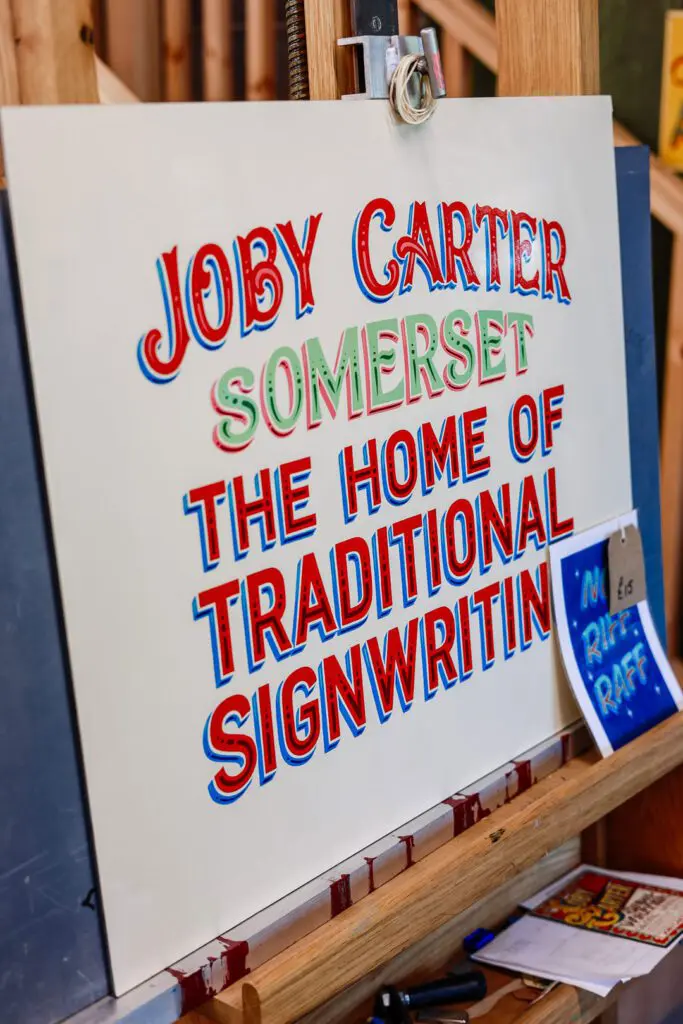 JOBY CARTER
SOMERSET
THE HOME OF
TRADITIONAL
SIGNWRITIN
£15
NO
RIFF
RAFF